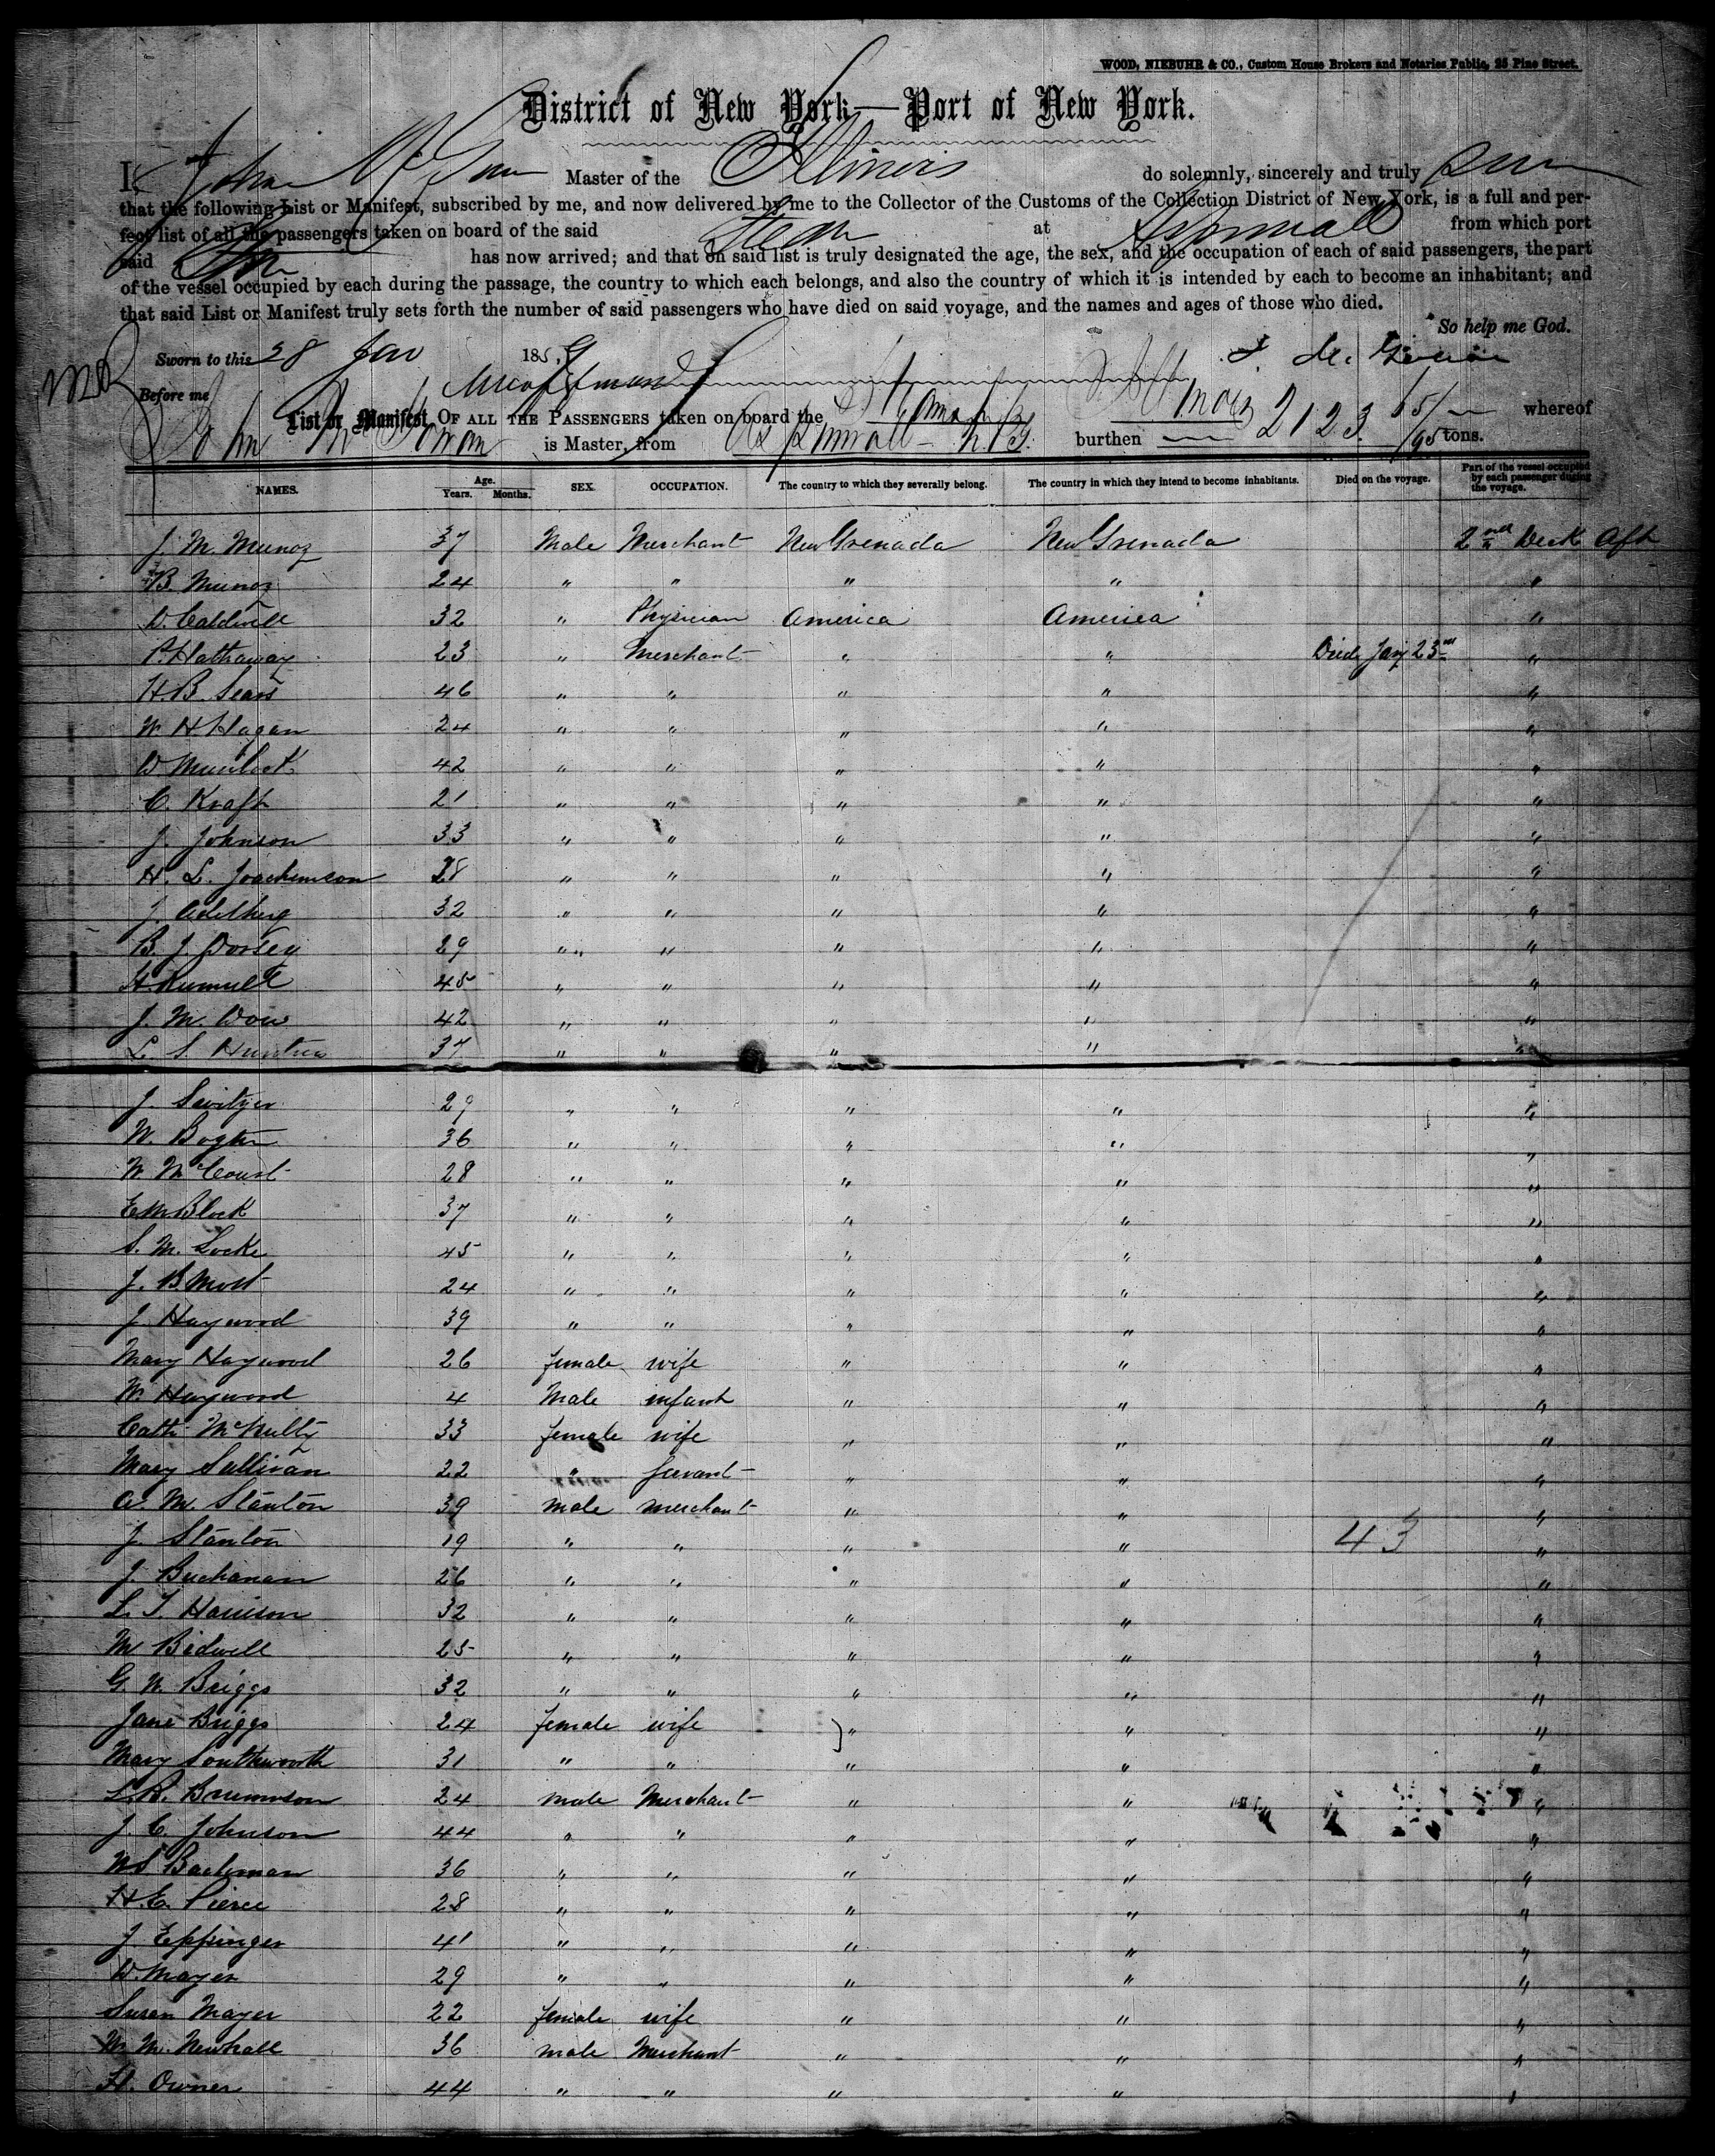 WOOD, NIEBUHR & CO., Custom House Brokers and Notaries Public, 25 Pine Street.
District of New York—Port of New York.
I, John Master of the Illinois do solemnly, sincerely and truly
that the following List or Manifest, subscribed by me, and now delivered by me to the Collector of the Customs of the Collection District of New York, is a full and per-
fect list of all the passengers taken on board of the said at Aspinwall from which port
said has now arrived; and that on said list is truly designated the age, the sex, and the occupation of each of said passengers, the part
of the vessel occupied by each during the passage, the country to which each belongs, and also the country of which it is intended by each to become an inhabitant; and
that said List or Manifest truly sets forth the number of said passengers who have died on said voyage, and the names and ages of those who died.
So help me God.
Sworn to this 28 Jan 1859
Before me
List or Manifest OF ALL THE PASSENGERS taken on board the Illinois whereof
John McGowan is Master, from Aspinwall N.G. burthen 2123 tons.
NAMES. Age. Years. Months. SEX. OCCUPATION. The country to which they severally belong. The country in which they intend to become inhabitants. Died on the voyage. Part of the vessel occupied by each passenger during the voyage.
J. M. Munoz 37 Male Merchant New Grenada New Grenada 2nd Deck Aft
B. Munoz 24 " " " " "
D. Caldwell 32 " Physician America America "
P. Hathaway 23 " Merchant " " Died Jany 23rd "
H. B. Sears 46 " " " " "
W. H. Hagan 24 " " " " "
W 42 " " " " "
C. Kraft 21 " " " " "
J. Johnson 33 " " " " "
H. L. Joachimson 28 " " " " "
J. 32 " " " " "
B. J. Dorsey 29 " " " " "
H. 45 " " " " "
J. M. Dow 42 " " " " "
L. S. 37 " " " " "
J. 29 " " " " "
W. 36 " " " " "
W. McCourt 28 " " " " "
E M Block 37 " " " " "
S. M. Locke 45 " " " " "
J. B. Mott 24 " " " " "
J Haywood 39 " " " " "
Mary Haywood 26 female wife " " "
W. Haywood 4 Male infant " " "
Cath McNulty 33 female wife " " "
Mary Sullivan 22 " Servant " " "
A. M. Stanton 39 male merchant " " "
J. Stanton 19 " " " " 43 "
J. Buchanan 26 " " " " "
L. T. Harrison 32 " " " " "
M Bidwell 25 " " " " "
G. W. Briggs 32 " " " " "
Jane Briggs 24 female wife " " "
Mary Southworth 31 " " " " "
L. B. 24 male Merchant " " "
J. C. Johnson 44 " " " " "
36 " " " " "
H. E. Pierce 28 " " " " "
J Eppinger 41 " " " " "
W. Mayer 29 " " " " "
Susan Mayer 22 female wife " " "
W. M. Newhall 36 male Merchant " " "
H. Owner 44 " " " " "